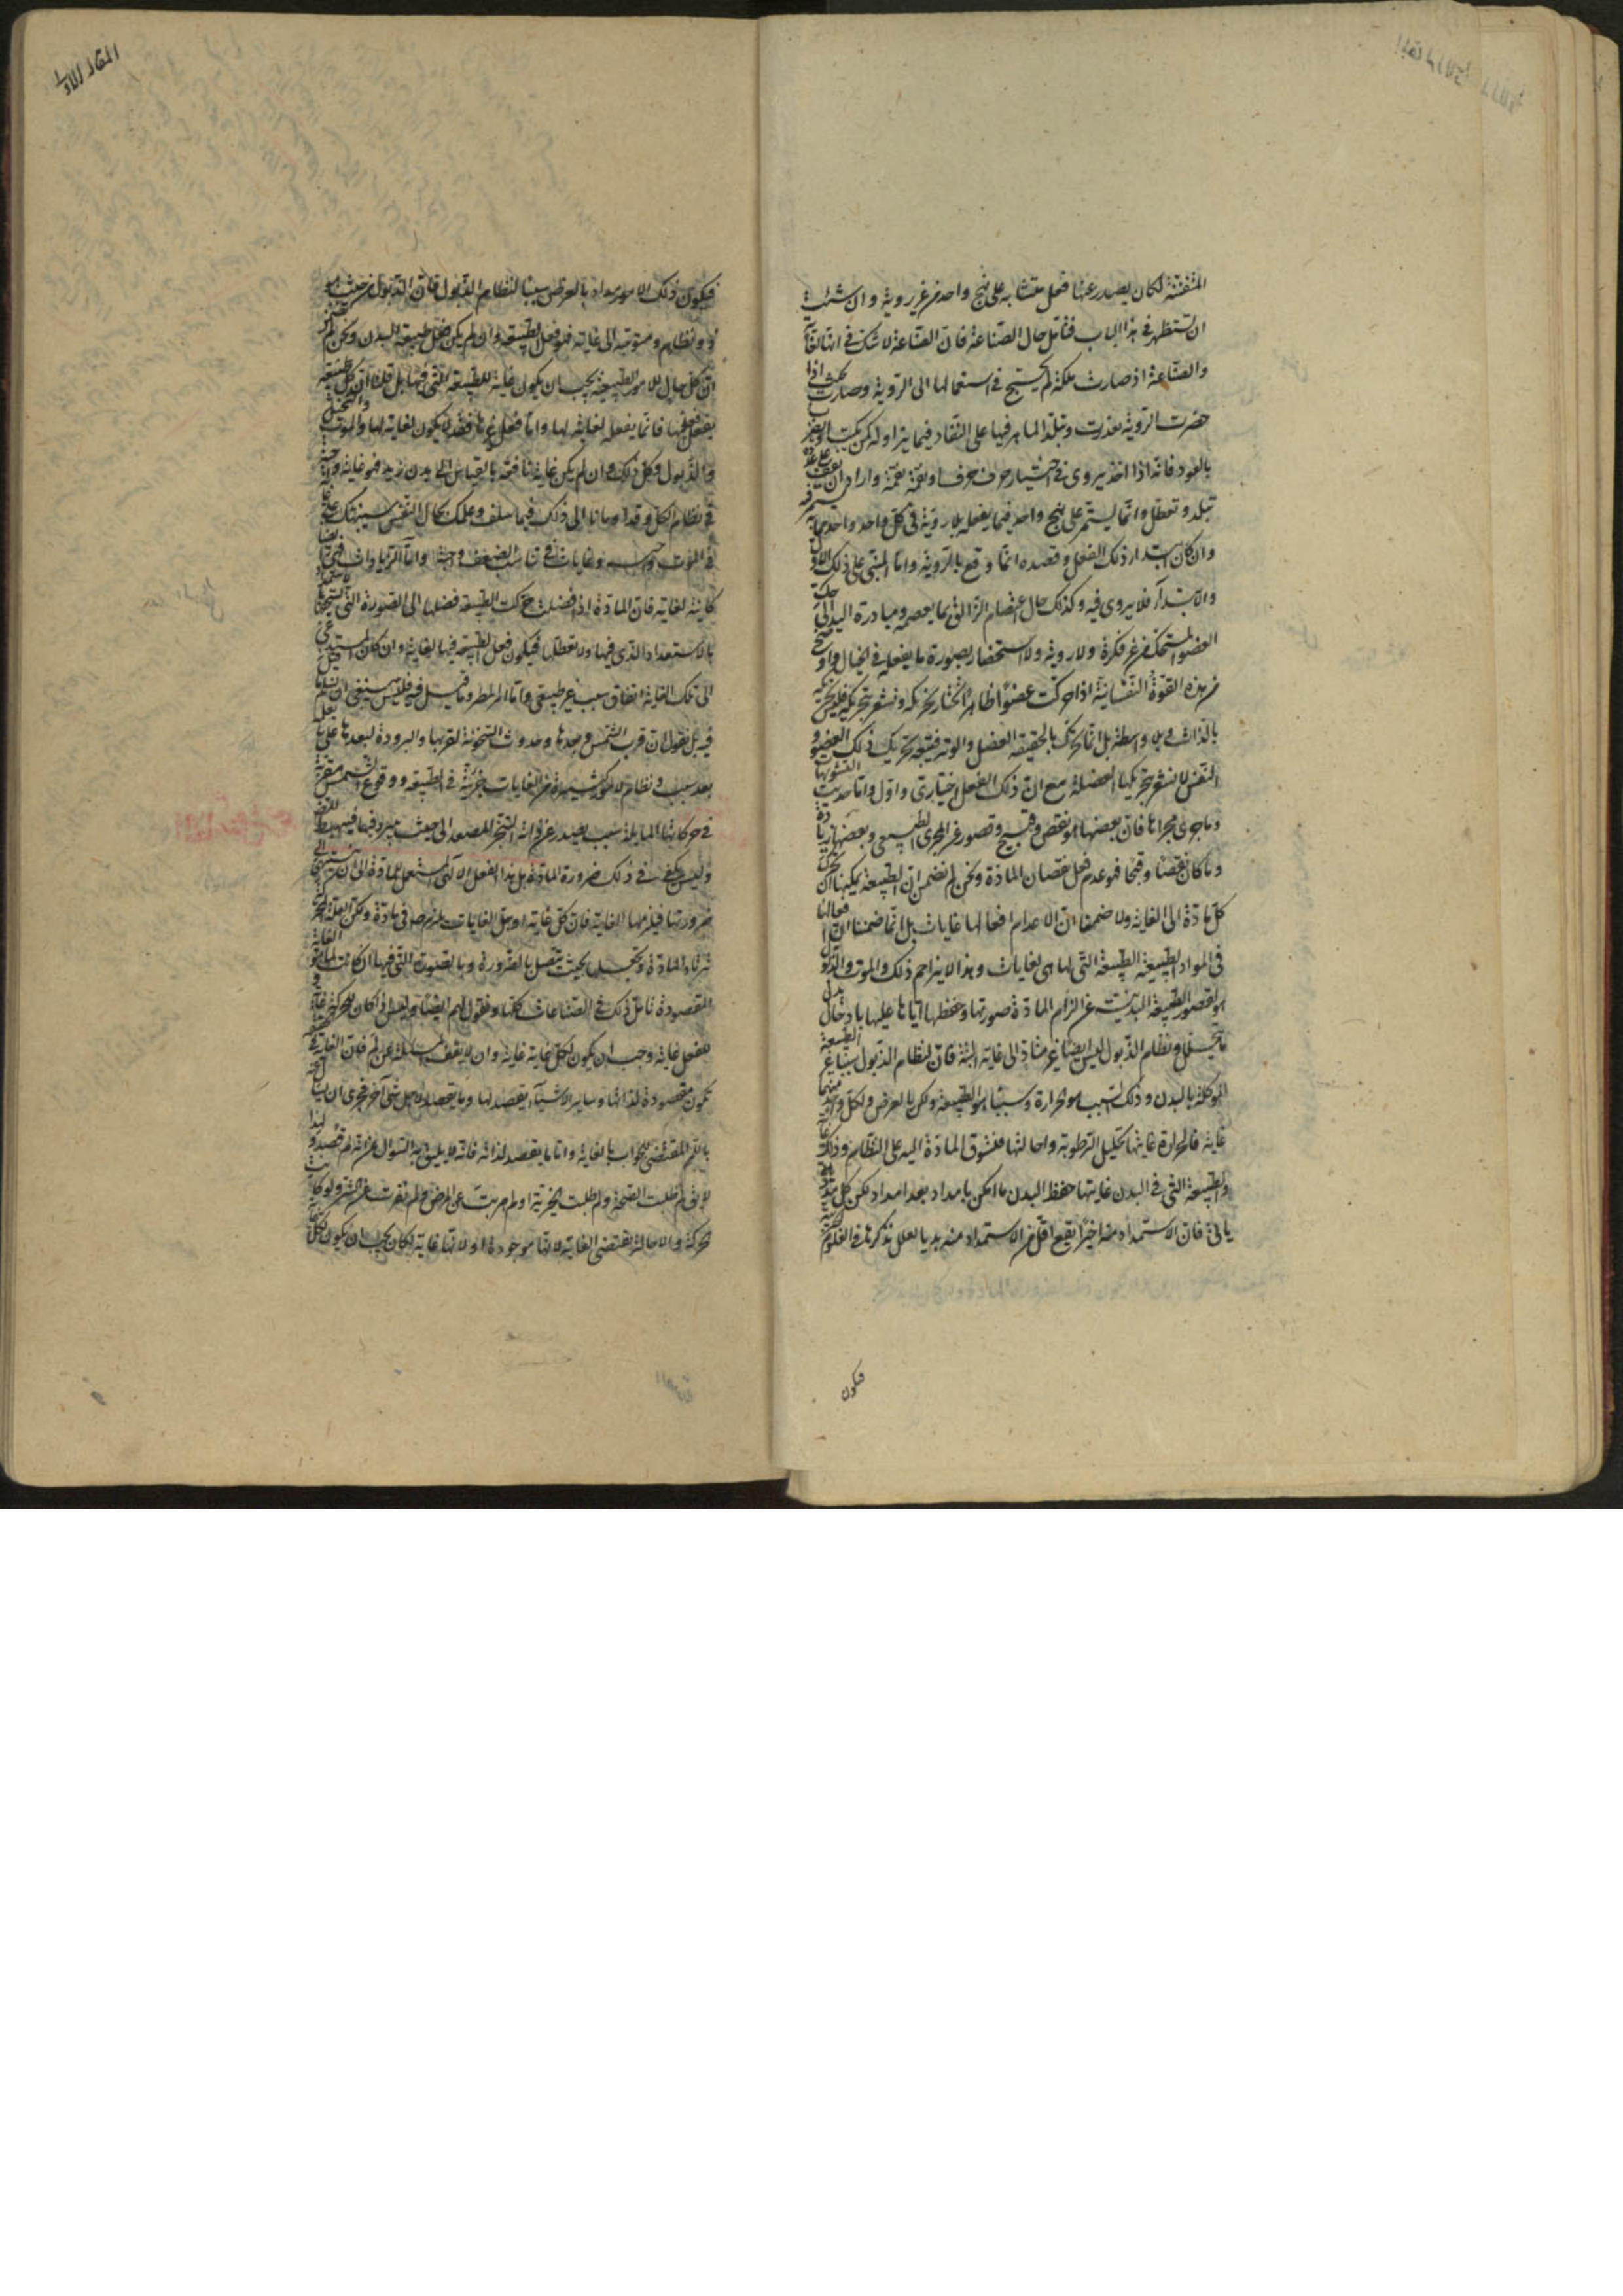 المتفننة لكان يصدر عنها فعل متشابه على نهج واحد من غير روية وان شئت
ان تستظهر فى هذا الباب فتأمل حال الصناعة فان الصناعة لا شك فى انها لغاية
والصناعة اذا صارت ملكة لم يحتج فى استعمالها الى الروية وصارت بحيث اذا
حضرت الروية تعذرت وتبلد الماهر فيها على النفاد فيما يزاوله كمن يكتب او يضرب
بالعود فانه اذا اخذ يروى فى اختيار حرف حرف او نغمة نغمة واراد ان يقف على عدده
تبلد وتعطل وانما يستمر على نهج واحد فيما يفعله بلا روية فى كل واحد واحد
وان كان ابتداء ذلك الفعل وقصده انما وقع بالروية واما المبنى على ذلك الاول
والابتداء فلا يروى فيه وكذلك حال اعتصام الزالق بما يعصمه ومبادرة اليد الى حك
العضو المستحك من غير فكرة ولا روية ولا استحضار لصورة ما يفعله فى الخيال واوضح
من هذه القوة النفسانية اذا حركت عضوا ظاهرا تختار تحريكه وتشعر بتحريكه فليس تحركه
بالذات وبلا واسطة بل انما تحرك بالحقيقة العضل والوتر فيتبعه تحريك ذلك العضو و
النفس لا تشعر بتحريكها العضلة مع ان ذلك الفعل اختيارى واول واما حديث التشويهات
وما جرى مجراها فان بعضها هو نقص وقبيح وقصور عن المجرى الطبيعى وبعضها زيادة
وما كان نقصا وقبحا فهو عدم فعل لعصيان المادة ونحن لم نضمن ان الطبيعة يمكنها ان تحرك
كل مادة الى الغاية ولا ضمنا ان لاعدام افعالها غايات بل انما ضمنا ان افعالها
فى المواد الطبيعة المطيعة التى لها هى لغايات وهذا لا يزاحم ذلك والموت والذبول
هو لقصور الطبيعة البدنية عن الزام المادة صورتها وحفظها اياها عليها بادخال بدل
ما يتحلل ونظام الذبول ليس ايضا غير متاد الى غاية البتة فان لنظام الذبول سببا غير الطبيعة
الموكلة بالبدن وذلك السبب هو الحرارة وسببا هو الطبيعة ولكن بالعرض ولكل واحد منهما
غاية فالحرارة غايتها تحليل الرطوبة واحالتها فتسوق المادة اليه على النظام وذلك غاية
والطبيعة التى فى البدن غايتها حفظ البدن ما امكن بامداد بعد امداد لكن كل مدد
يأتى فان الاستمداد منه اخيرا يقع اقل من الاستمداد منه بديا لعلل نذكرها فى العلوم
فيكون
المقالة الاولى
فيكون ذلك الامداد بالعرض سببا لنظام الذبول فان الذبول من حيث هو
ذو نظام ومتوجه الى غاية فهو فعل لطبيعة وان لم يكن فعل طبيعة البدن ونحن لم نضمن
ان كل حال للامور الطبيعية يجب ان يكون غاية للطبيعة التى فيها بل قلنا ان كل طبيعة
تفعل فعلها فانما تفعله لغاية لها واما فعل غيرها فقد لا يكون لغاية لها والموت والتحليل
والذبول وكل ذلك وان لم يكن غاية نافعة بالقياس الى بدن زيد فهو غاية واجبة
فى نظام الكل وقد اومانا الى ذلك فيما سلف وعلمك بحال النفس سينبهك على غاية
فى الموت واجبة وغايات فى تناسب الضعف واجبة واما الزيادات فهى ايضا
كاينة لغاية فان المادة اذا فضلت حركت الطبيعة فضلها الى الصورة التى تستحقها
بالاستعداد الذى فيها ولا تعطلها فيكون فعل الطبيعة فيها لغاية وان كان المستدعى
الى تلك الغاية اتفاق سبب غير طبيعى واما امر المطر وما قيل فيه فليس ينبغى ان نسلم ما قيل
فيه بل نقول ان قرب الشمس وبعدها وحدوث السخونة لقربها والبرودة لبعدها على ما تعلم
بعد سبب ونظام لامور كثيرة من الغايات جزئية فى الطبيعة ووقوع الشمس مقربة
فى حركاتها المايلة سبب يصدر عن ذاته التبخر المصعد الى حيث يبرد فيها فيهبط للثقل
وليس يكفى فى ذلك ضرورة المادة بل هذا الفعل الالهى المستعمل للمادة الى ان تنتهى الى
ضرورتها فيلزمها الغاية فان كل غاية او جل الغايات يلزم ضرورة فى مادة ولكن العلة المحركة
ترتاد المادة وتجعلها بحيث تتصل بالضرورة وبالصورة التى فيها ان كانت لها الغاية
المقصودة تأمل ذلك فى الصناعات كلها ونقول لهم ايضا وليس اذا كان للحركة غاية و
للفعل غاية وجب ان يكون لكل غاية غاية وان لا يقف المسئلة عن لم فان الغاية فى الحقيقة
تكون مقصودة لذاتها وساير الاشياء يقصد لها وما يقصد لاجل شىء آخر فحرى ان يسأل عنه
باللم المقتضى للجواب بالغاية واما ما يقصد لذاته فانه لا يليق به السؤال عن انه لم قصد و لهذا
لا يقال لم طلبت الصحة ولم طلبت الخيرية او لم هربت عن المرض ولم نفرت عن الشر ولو كانت
الحركة والاحالة تقتضى الغاية لانها موجودة او لانها غاية لكان يجب ان يكون لكل غاية